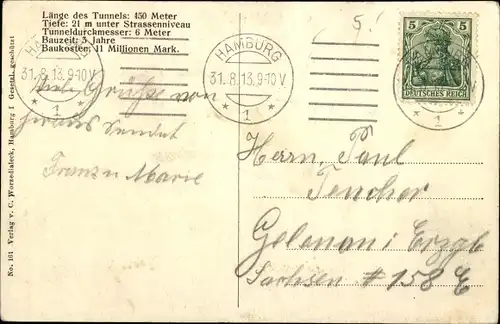 Länge des Tunnels: 450 Meter
Tiefe: 21 m unter Strassenniveau
Tunneldurchmesser: 6 Meter
Bauzeit: 3 Jahre
Baukosten: 11 Millionen Mark.
HAMBURG
31.8.13.9-10V
* 1 *
HAMBURG
31.8.13.9-10V
* 1 *
5 5
DEUTSCHES REICH
* 1 *
Grüße von
sendet
Franz u Marie
Herrn Paul
Gelenau i Erzgb
Sachsen # 158 E
No. 161 Verlag v. C. Worzedialeck, Hamburg 1 Gesetzl. geschützt